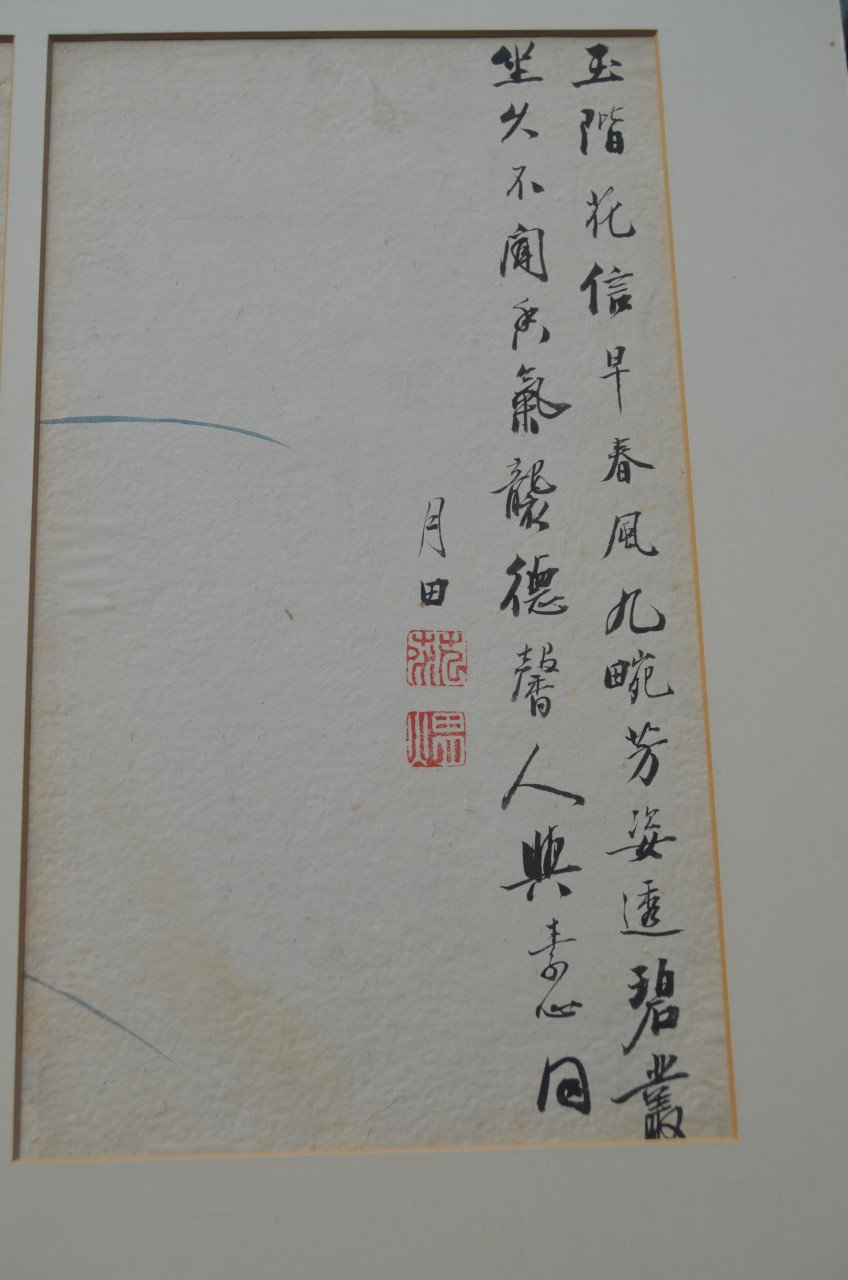 玉階花信早春風九畹芳姿透碧叢
坐久不聞香氣襲德馨人與素心同
月田